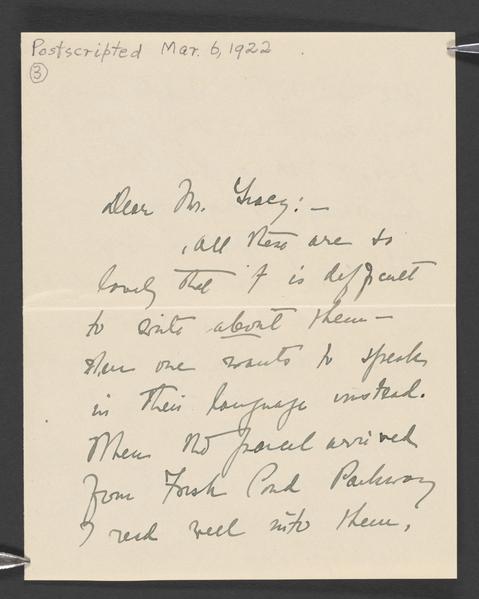 Postscripted Mar. 6, 1922
3
Dear Mr. Tracy: —
All these are so
lovely that it is difficult
to write about them —
when one wants to speak
in their language instead.
When the parcel arrived
from Fresh Pond Parkway
I read well into them,